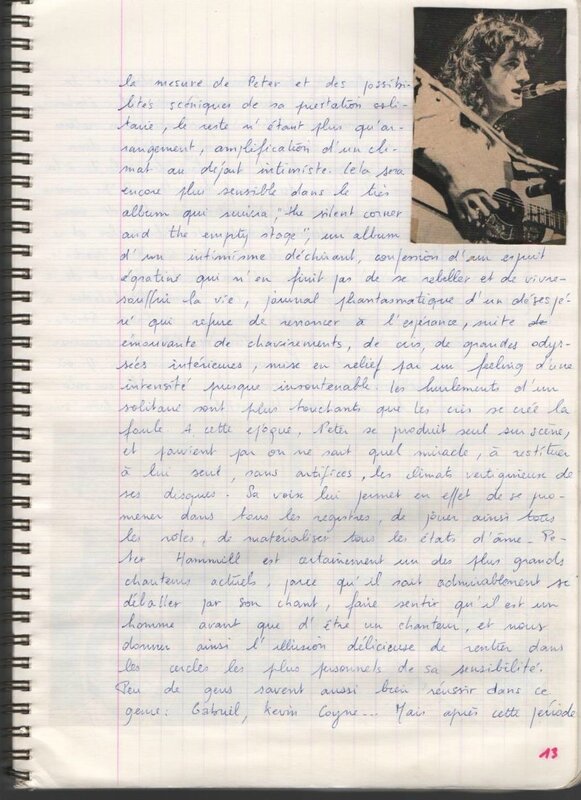 la mesure de Peter et des possibi-
lités scéniques de sa prestation soli-
taire, le reste n'étant plus qu'ar-
rangement, amplification d'un cli-
mat au départ intimiste. Cela sera
encore plus sensible dans le très
album qui suivra, "the silent corner
and the empty stage", un album
d'un intimisme déchirant, confession d'un esprit
égratiné qui n'en finit pas de se rebeller et de vivre-
souffrir la vie, journal phantasmatique d'un désespé-
ré qui refuse de renoncer à l'espérance, suite
émouvante de chavirements, de cris, de grandes odys-
sées intérieures, mise en relief par un feeling d'une
intensité presque insoutenable. les hurlements d'un
solitaire sont plus touchants que les cris se crée la
foule. A cette époque, Peter se produit seul sur scène,
et parvient par on ne sait quel miracle, à restituer
à lui seul, sans artifices, les climats vertigineux de
ses disques. Sa voix lui permet en effet de se pro-
mener dans tous les registres, de jouer ainsi tous
les rôles, de matérialiser tous les états d'âme. Pe-
ter Hammill est certainement un des plus grands
chanteurs actuels, parce qu'il sait admirablement se
déballer par son chant, faire sentir qu'il est un
homme avant que d'être un chanteur, et nous
donner ainsi l'illusion délicieuse de rentrer dans
les cercles les plus personnels de sa sensibilité.
Peu de gens savent aussi bien réussir dans ce
genre: Gabriel, Kevin Coyne... Mais après cette période
13